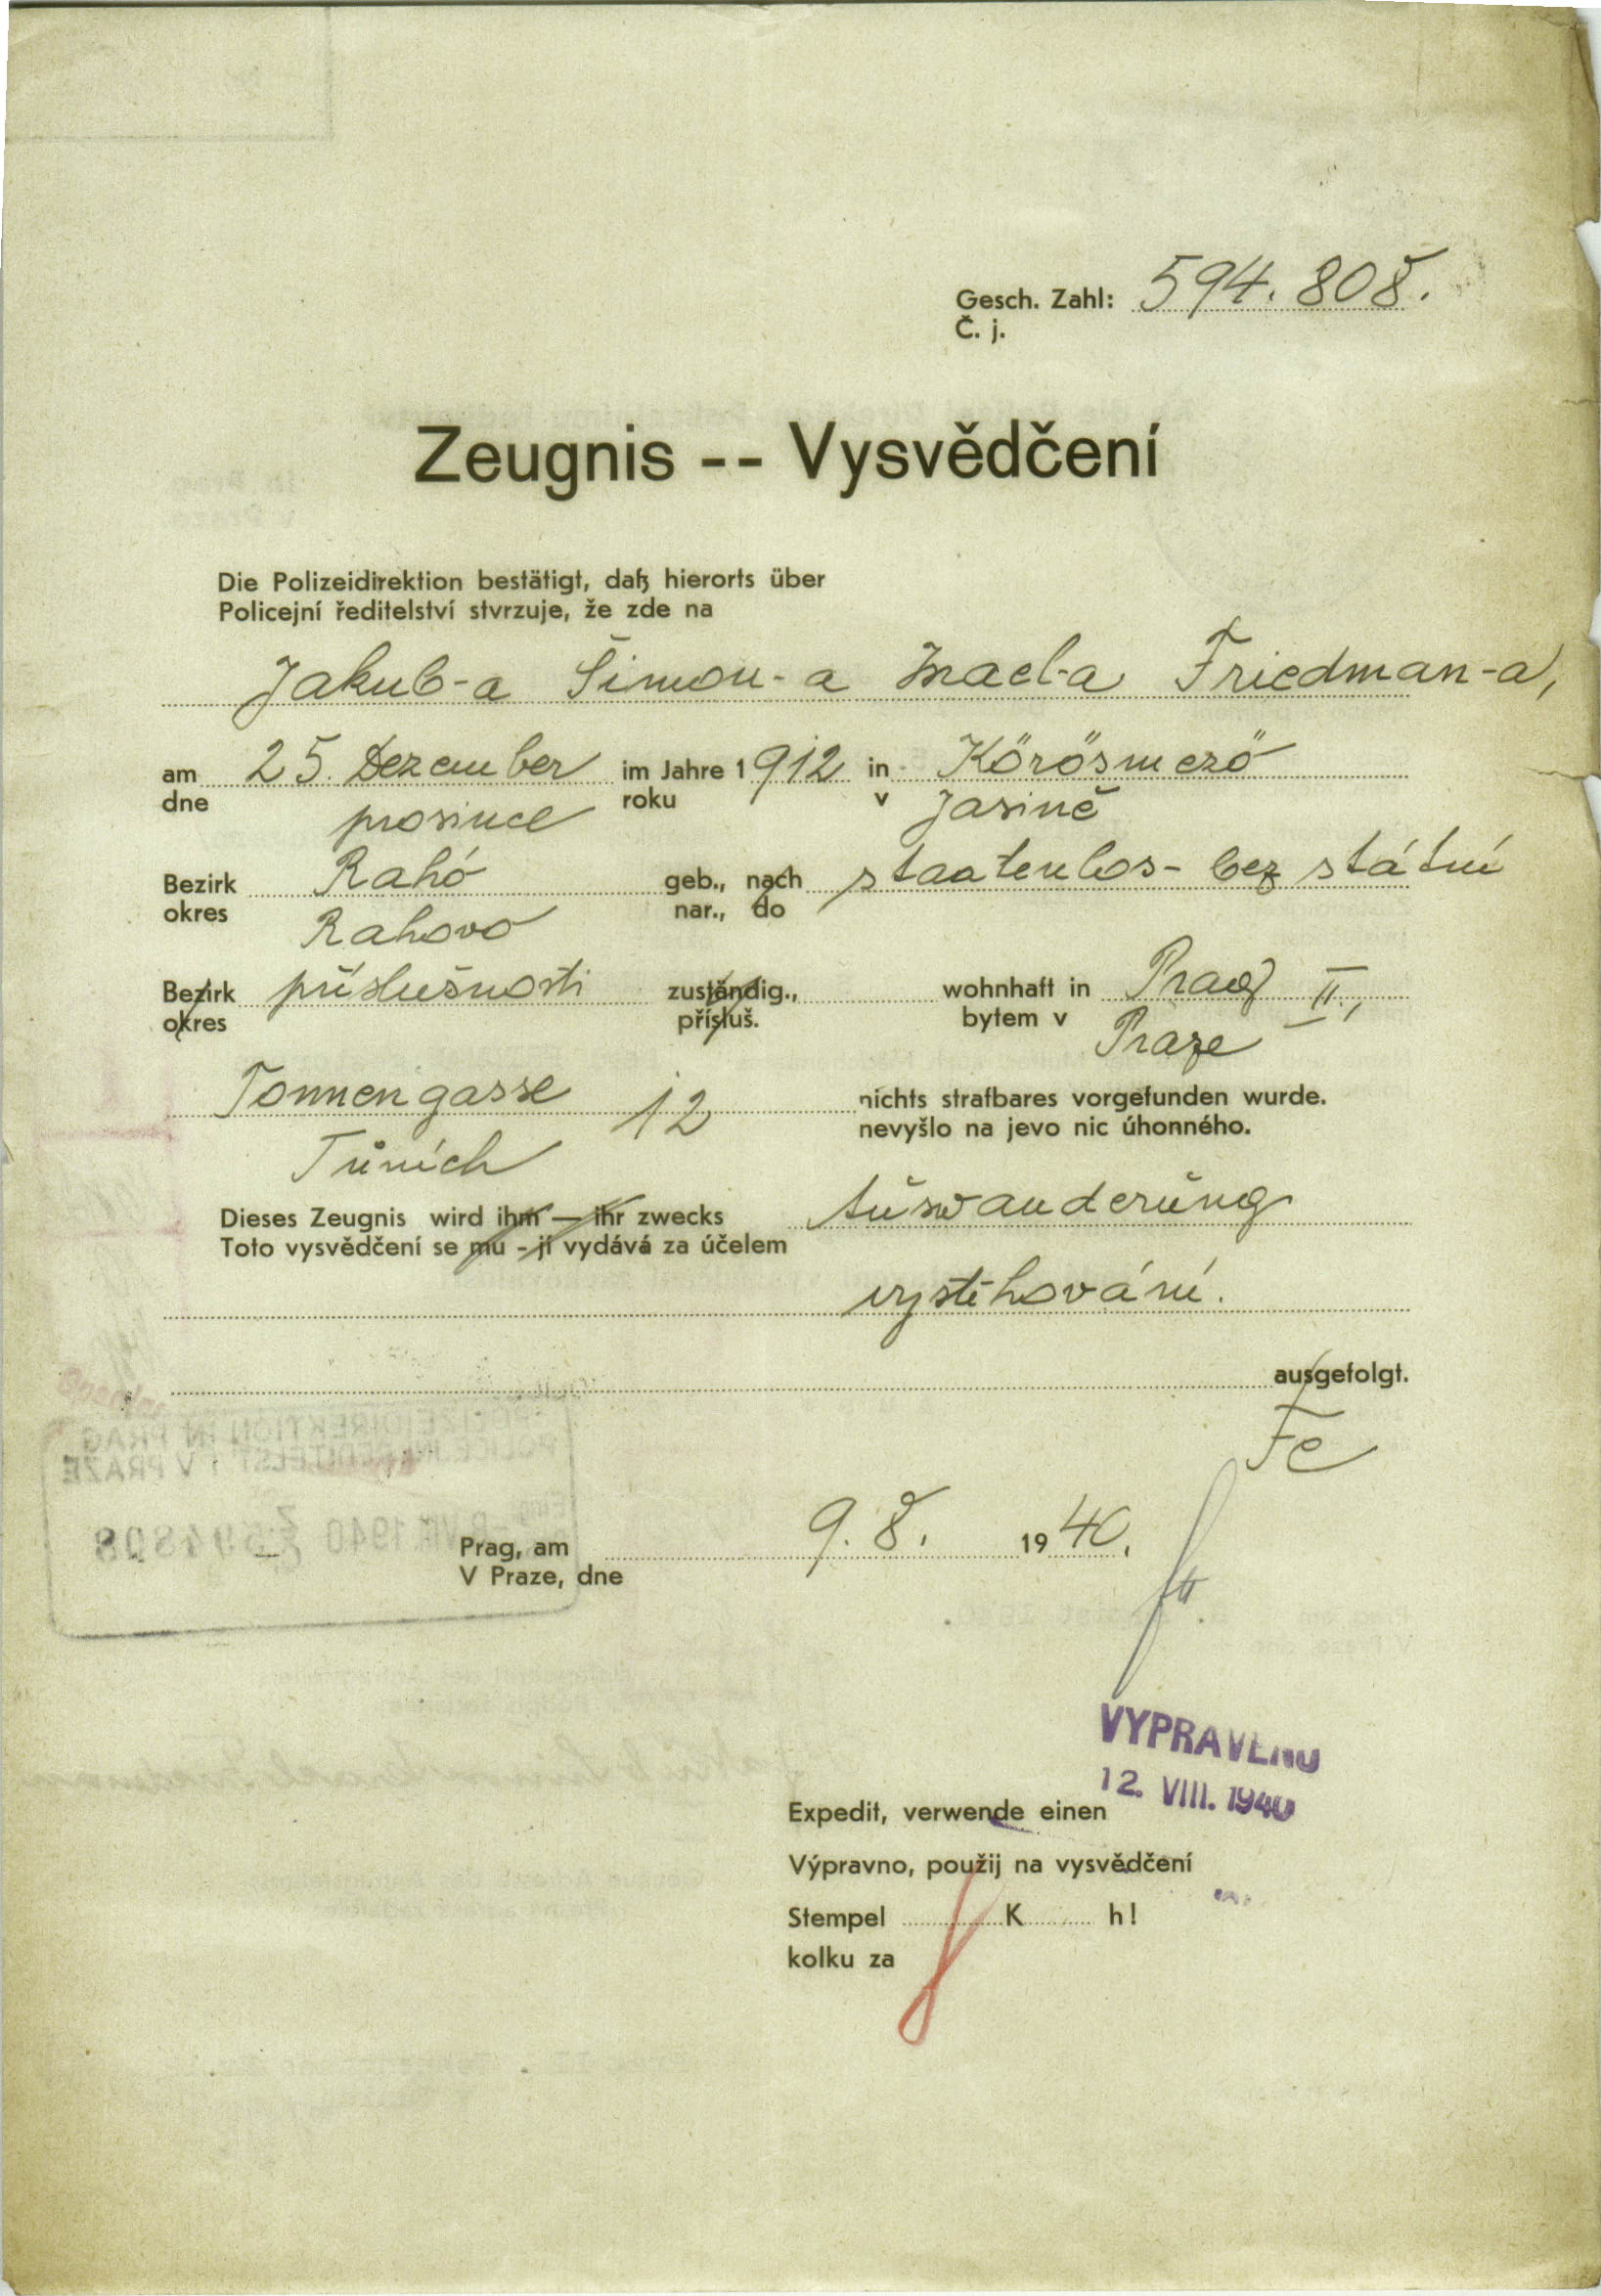 Gesch. Zahl: 594.808.
Č. j.
Zeugnis -- Vysvědčení
Die Polizeidirektion bestätigt, daß hierorts über
Policejní ředitelství stvrzuje, že zde na
Jakub-a Šimon-a Israel-a Friedman-a,
am 25. Dezember im Jahre 1912 in Körösmező
dne prosince roku v Jasině
Bezirk Rahó geb., nach staatenlos - bez státní
okres Rahovo nar., do
Bezirk příslušnosti zuständig., wohnhaft in Prag II.,
okres přísluš. bytem v Praze
Tonnengasse 12 nichts strafbares vorgefunden wurde.
Tůních nevyšlo na jevo nic úhonného.
Dieses Zeugnis wird ihm — ihr zwecks Auswanderung
Toto vysvědčení se mu - jí vydává za účelem
vystěhování.
ausgefolgt.
Fe
POLIZEIDIREKTION IN PRAG
POLICEJNÍ ŘEDITELSTVÍ V PRAZE
VIII. 1940 594808
Prag, am 9. 8. 1940.
V Praze, dne
VYPRAVENO
12. VIII. 1940
Expedit, verwende einen
Výpravno, použij na vysvědčení
Stempel K h!
kolku za